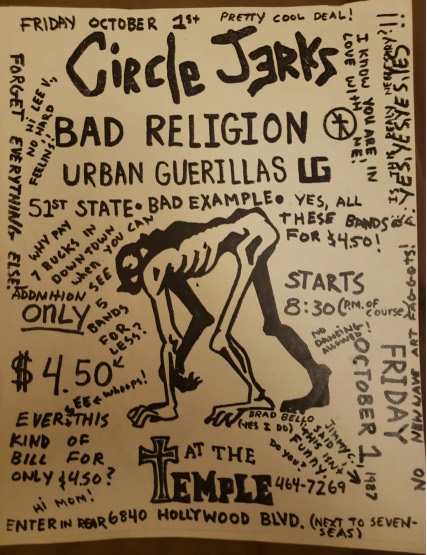 FRIDAY OCTOBER 1st PRETTY COOL DEAL!
CIRCLE JERKS
BAD RELIGION
URBAN GUERILLAS UG
51ST STATE • BAD EXAMPLE • YES, ALL
THESE BANDS
FOR $4.50!
STARTS
8:30 (P.M. OF
course)
NO
DANCING!
ALLOWED!
WHY PAY
7 BUCKS IN
DOWNTOWN
When YOU CAN
SEE
5
BANDS
FOR
LESS?
ADDMITION
ONLY
$4.50
SEE ← Whoops!
EVER THIS
KIND OF
BILL FOR
ONLY $4.50?
Hi MOM!
BRAD BELTO
(YES I DO)
JIMMY
SAID
THIS ISN'T
FUNNY
DO YOU?
AT THE
TEMPLE
464-7269
ENTER IN REAR 6840 HOLLYWOOD BLVD. (NEXT TO SEVEN-
SEAS)
FORGET EVERYTHING ELSE
Hi LEE V,
NO HARD
FEELINS!
I KNOW YOU ARE IN
LOVE WITH ME!
YES, YES, YES, YES
FRIDAY
OCTOBER 1, 1987
NO NEW WAVE ART FAGGOTS!